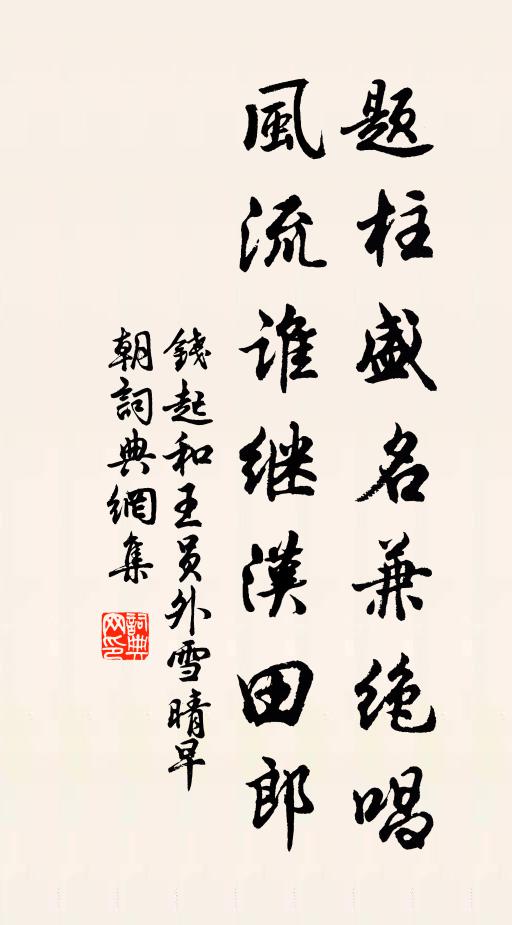 题柱盛名兼绝唱
風流谁继漢田郎
錢起和王员外雪晴早
朝詞典網集
詞典
网